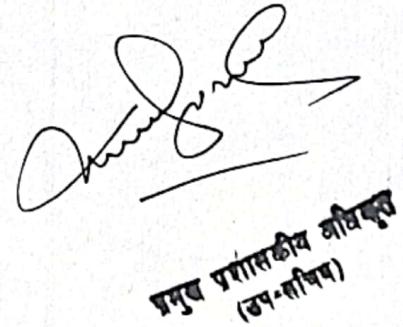 प्रमुख प्रशासकीय अधिकृत
(उप-सचिव)